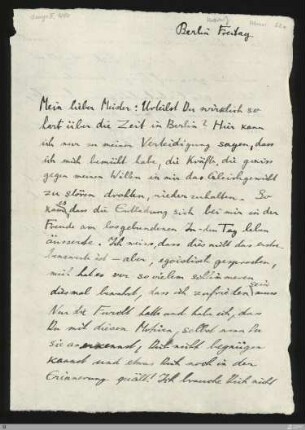 Berlin Freitag.
Mein lieber Mieder: Urteilst Du wirklich so
hart über die Zeit in Berlin? Hier kann
ich nur zu meiner Verteidigung sagen, dass
ich mich bemüht habe, die Kräfte, die
gegen meinen Willen in mir das Gleichgewicht
zu stören drohten, niederzuhalten. So
kam es, dass die Entladung sich bei mir in der
Freude am losgebundenen In-den-Tag-leben
äusserte. Ich weiss, dass dies nicht das
ist – aber, egoistisch gesprochen,
mich hat es vor so vielem schlimmeren
diesmal bewahrt, dass ich zufrieden sein muss
Nur die Furcht habe ich, dass
Du mit diesen Motiven, selbst wenn Du
sie anerkennst, Dich nicht begnügen
kannst und etwas Dich noch in der
Erinnerung quält! Ich brauche Dich nicht